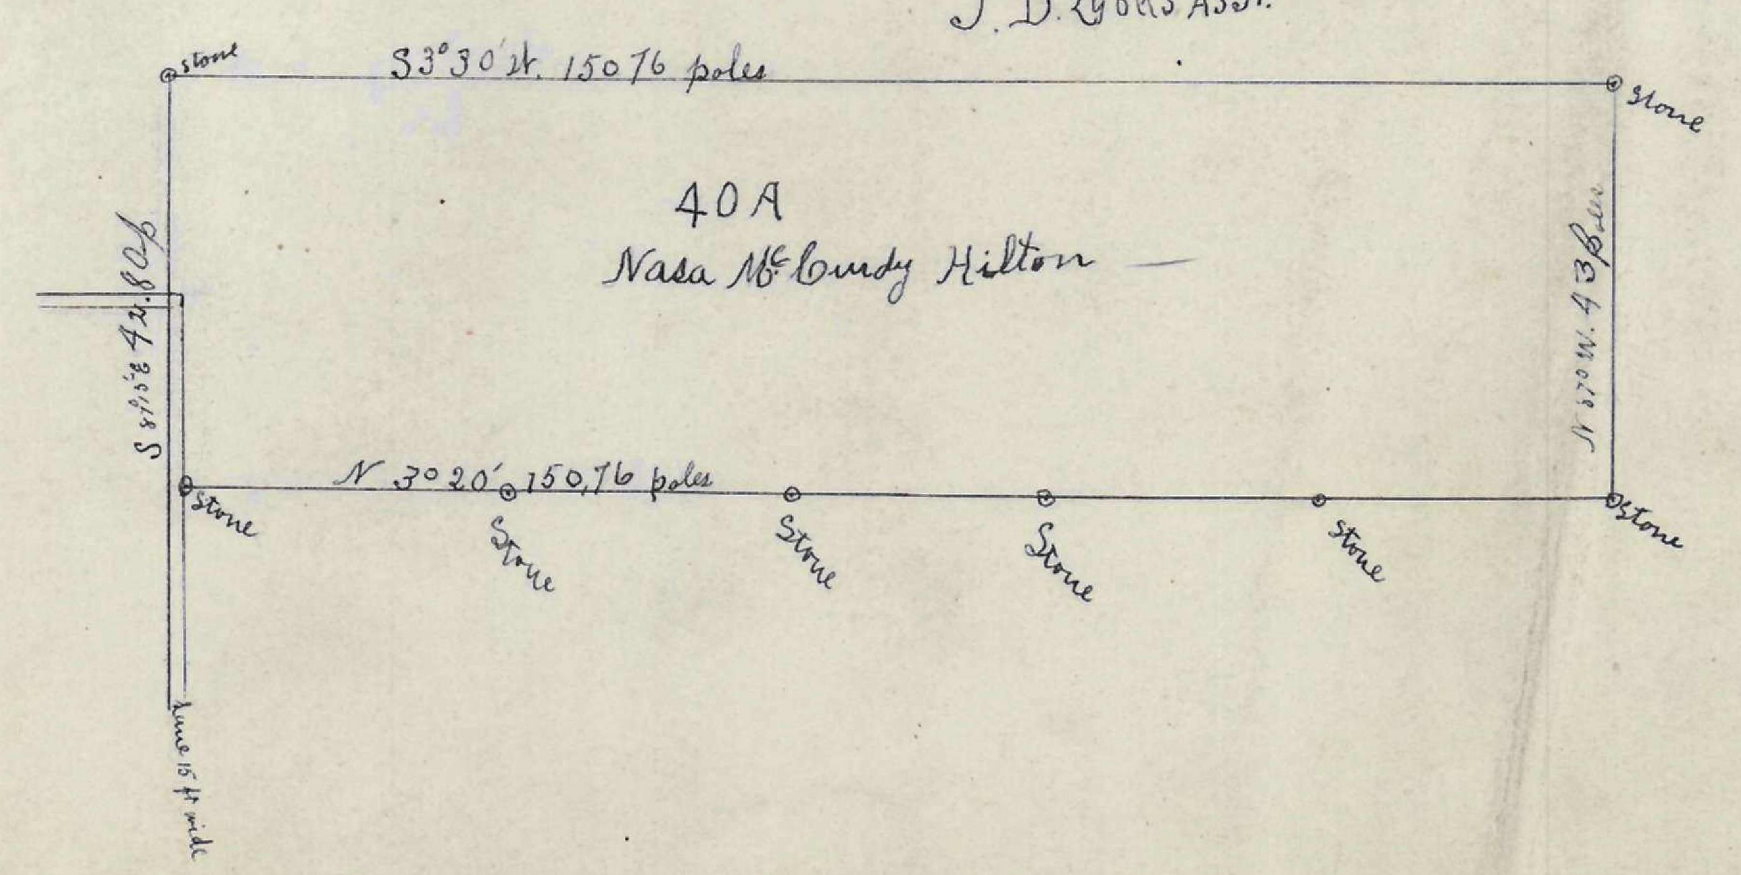 J. D. Lyons Asst.
Stone
S 3° 30' W. 150 76 poles
Stone
40 A
Nasa Mc Curdy Hilton
42.80
N 3° 20' 150,76 poles
Stone
Stone
Stone
Stone
Stone
Stone
Lane 15 ft wide